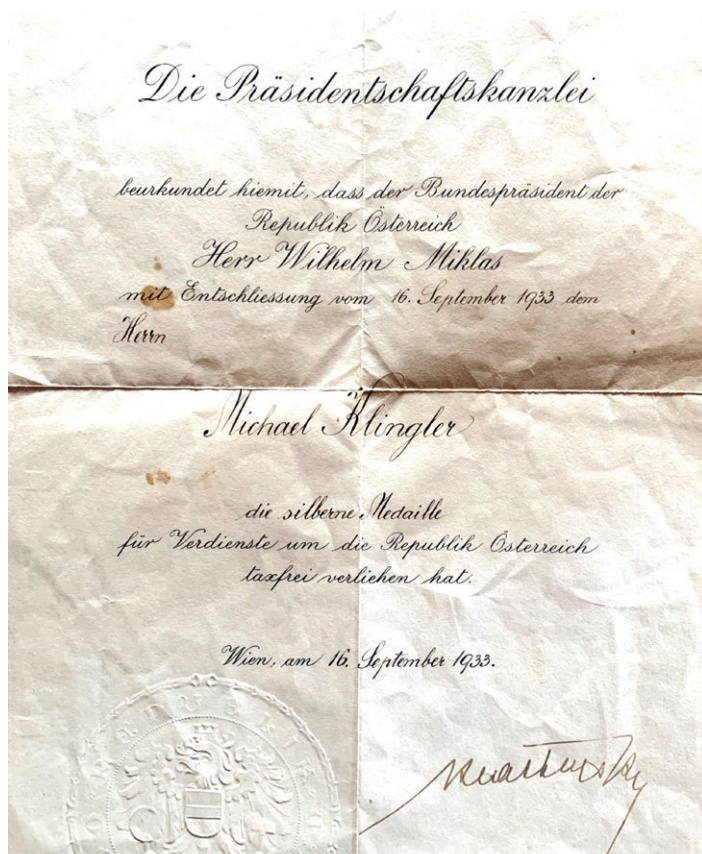 Die Präsidentschaftskanzlei
beurkundet hiemit, dass der Bundespräsident der
Republik Österreich
Herr Wilhelm Miklas
mit Entschliessung vom 16. September 1933 dem
Herrn
Michael Klingler
die silberne Medaille
für Verdienste um die Republik Österreich
taxfrei verliehen hat.
Wien, am 16. September 1933.